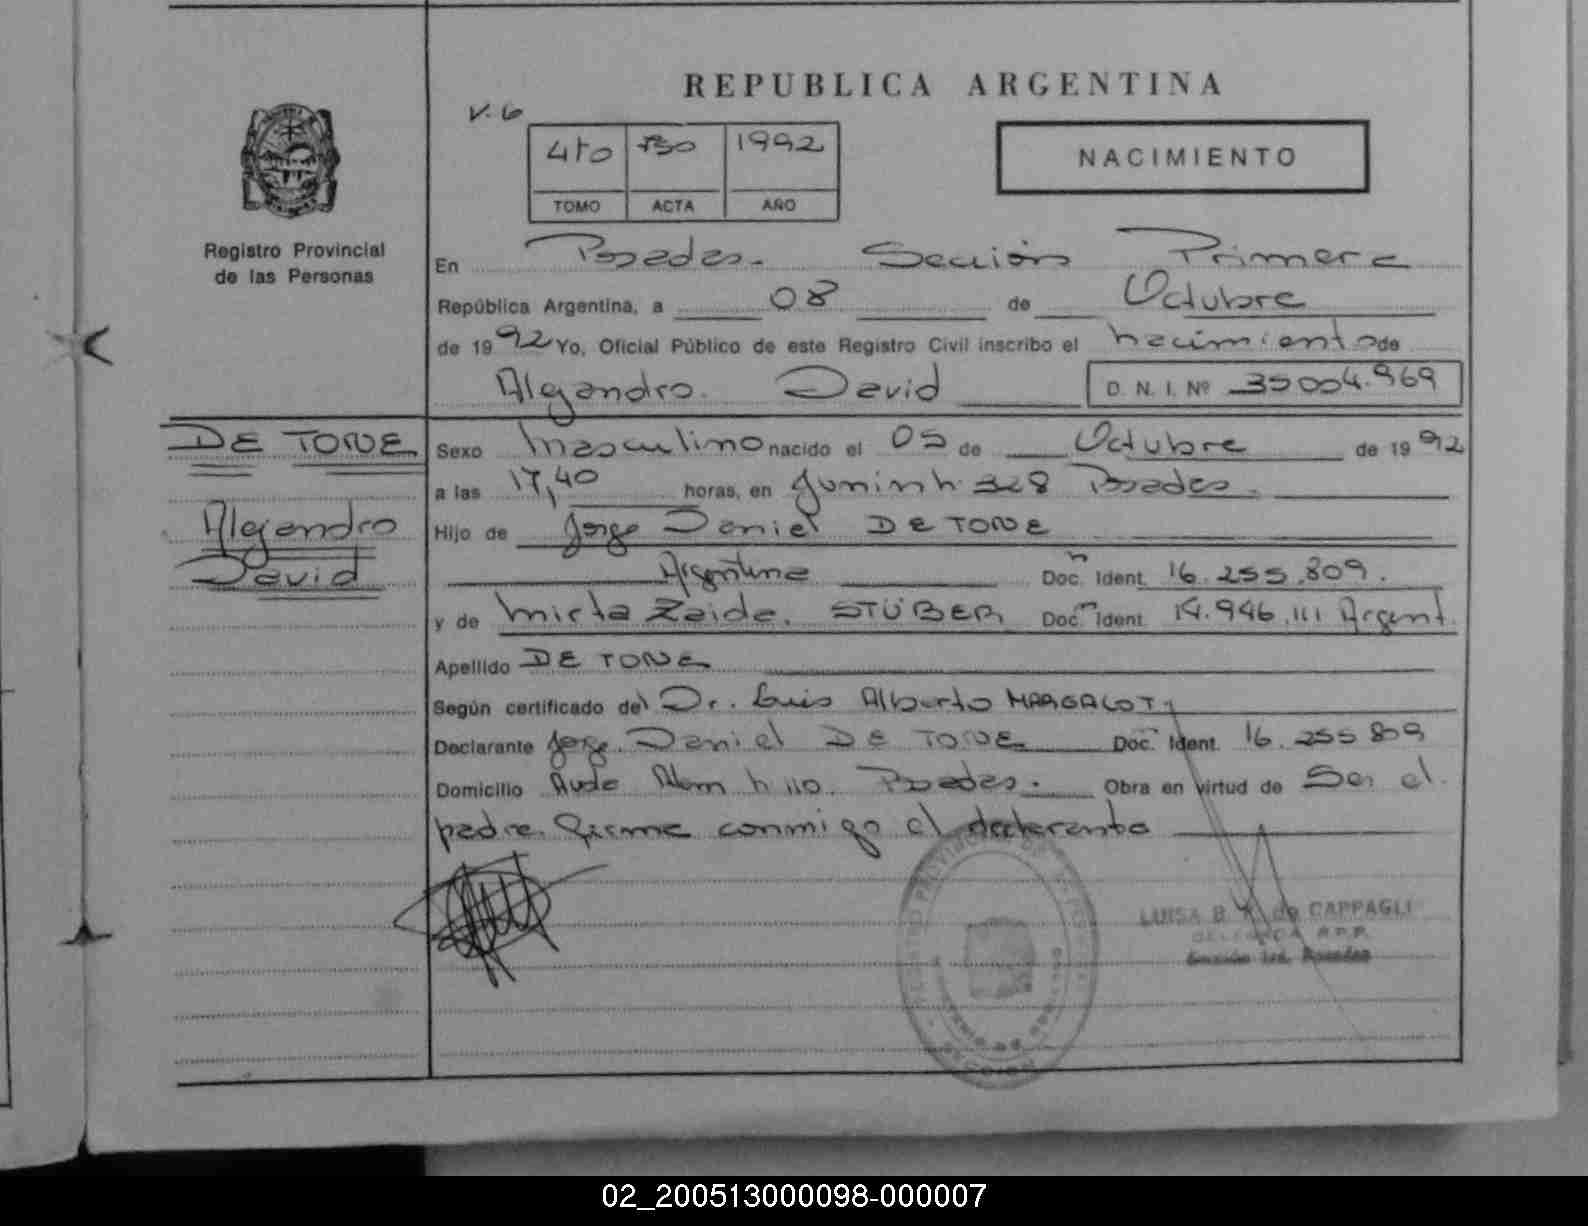 REPUBLICA ARGENTINA
V. 6
4to 730 1992
TOMO ACTA AÑO
NACIMIENTO
Registro Provincial
de las Personas
En Posadas. Sección Primera
República Argentina, a 08 de Octubre
de 1992 Yo, Oficial Público de este Registro Civil inscribo el nacimiento de
Alejandro David D. N. I. Nº 35004.969
DE TONE
Alejandro
David
Sexo masculino nacido el 05 de Octubre de 1992
a las 17,40 horas, en Junin n. 328 Posadas.
Hijo de Jorge Daniel DE TONE
Argentina Doc. Ident. 16.255.809.
y de Mirta Zaida. STÜBER Doc. Ident. 14.946.111 Argent.
Apellido DE TONE
Según certificado del Dr. Luis Alberto MARGALOT
Declarante Jorge Daniel DE TONE Doc. Ident. 16.255 809
Domicilio Avda Alem n 110. Posadas. Obra en virtud de Ser el
padre. Firma conmigo el declarante
LUISA B. de CAPPAGLI
DELEGADA R.P.P.
Sección 1ra. Posadas
02_200513000098-000007